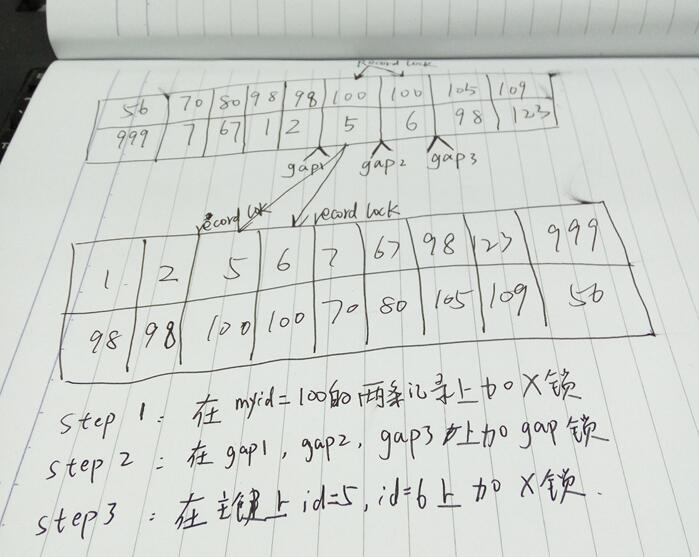 Record lock
56 70 80 98 98 100 100 105 109
999 7 67 1 2 5 6 98 123
gap1 gap2 gap3
record lock record lock
1 2 5 6 7 67 98 123 999
98 98 100 100 70 80 105 109 56
step 1: 在myid=100的两条记录上加X锁
step 2: 在gap1, gap2, gap3上加gap锁
step3: 在主键上id=5, id=6上加X锁.